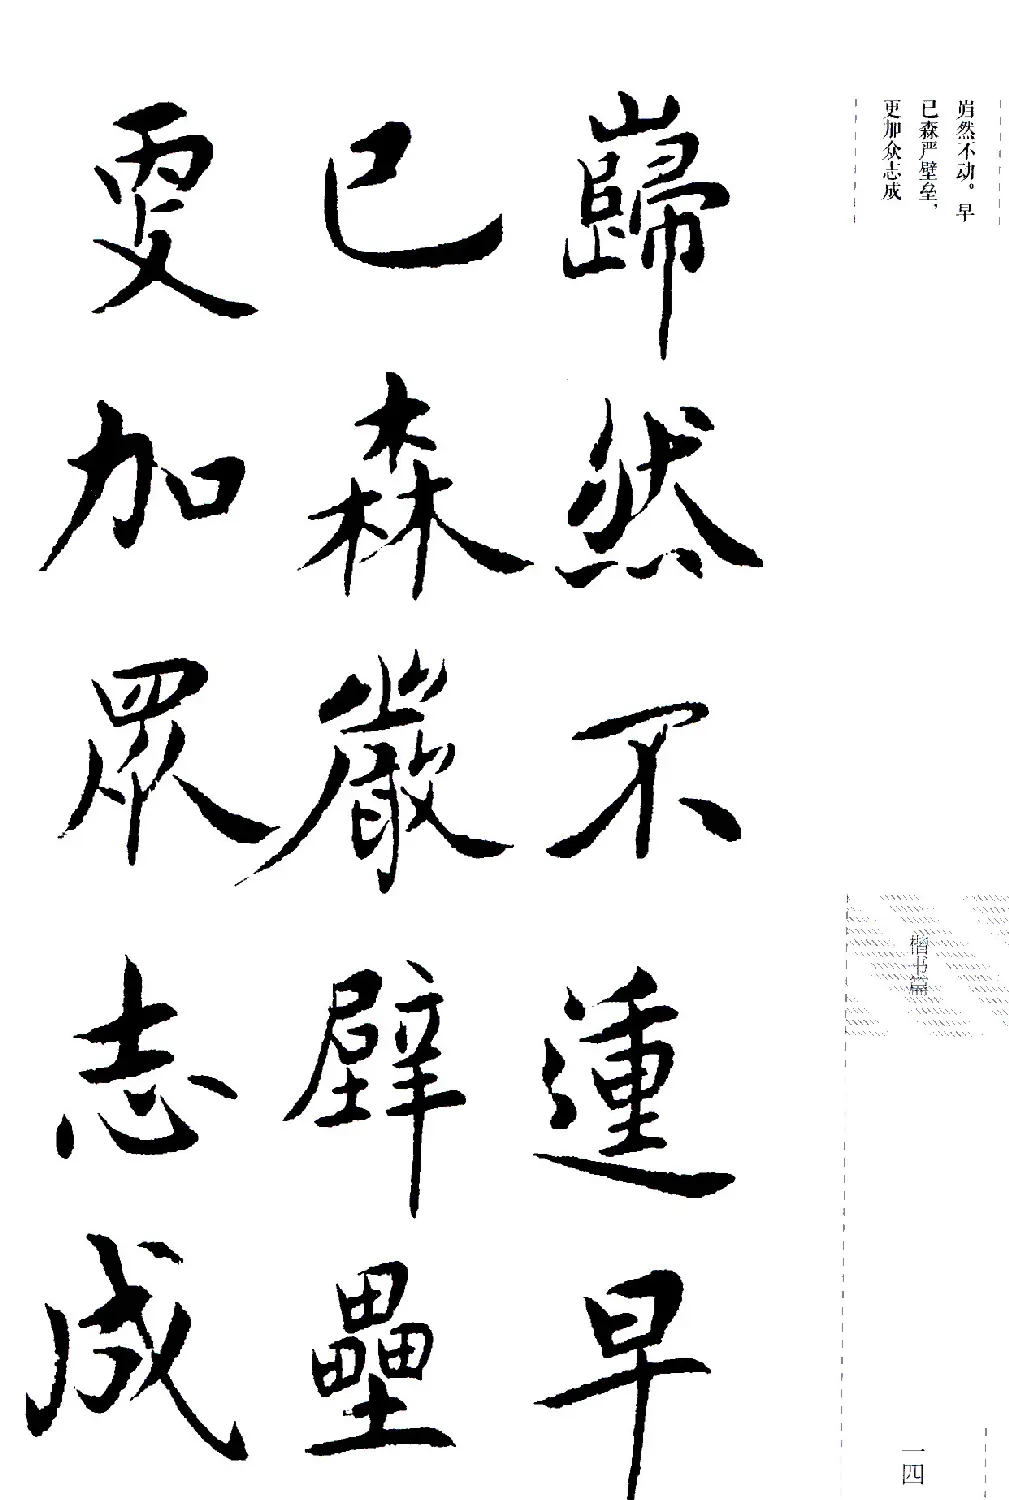 岿然不动。早
已森严壁垒，
更加众志成
巋然不運早
已森嚴壁壘
更加眾志成
楷书篇
一四